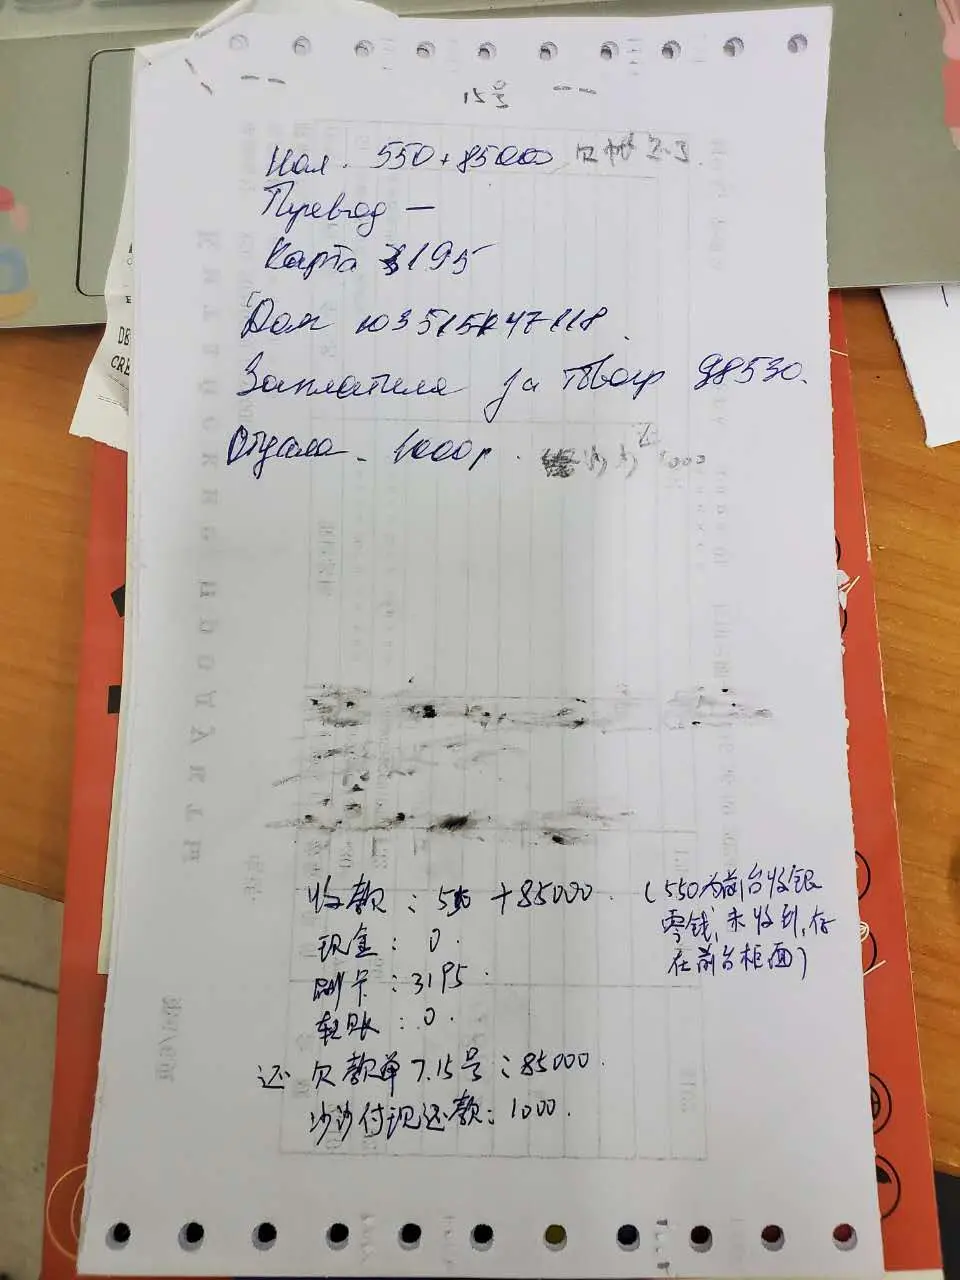 15号
Нал. 550+85000 欠
Перевод —
Карта 3195
Дом
Заплатила за товар 98530.
Отдала - 1000р. 还 1000
收款：550+85000. （550为前台收银
零钱，未收到，存
在前台柜面）
现金：0.
刷卡：3195.
转账：0.
还欠款单7.15号：85000.
沙沙付现还款：1000.
DB
CRE